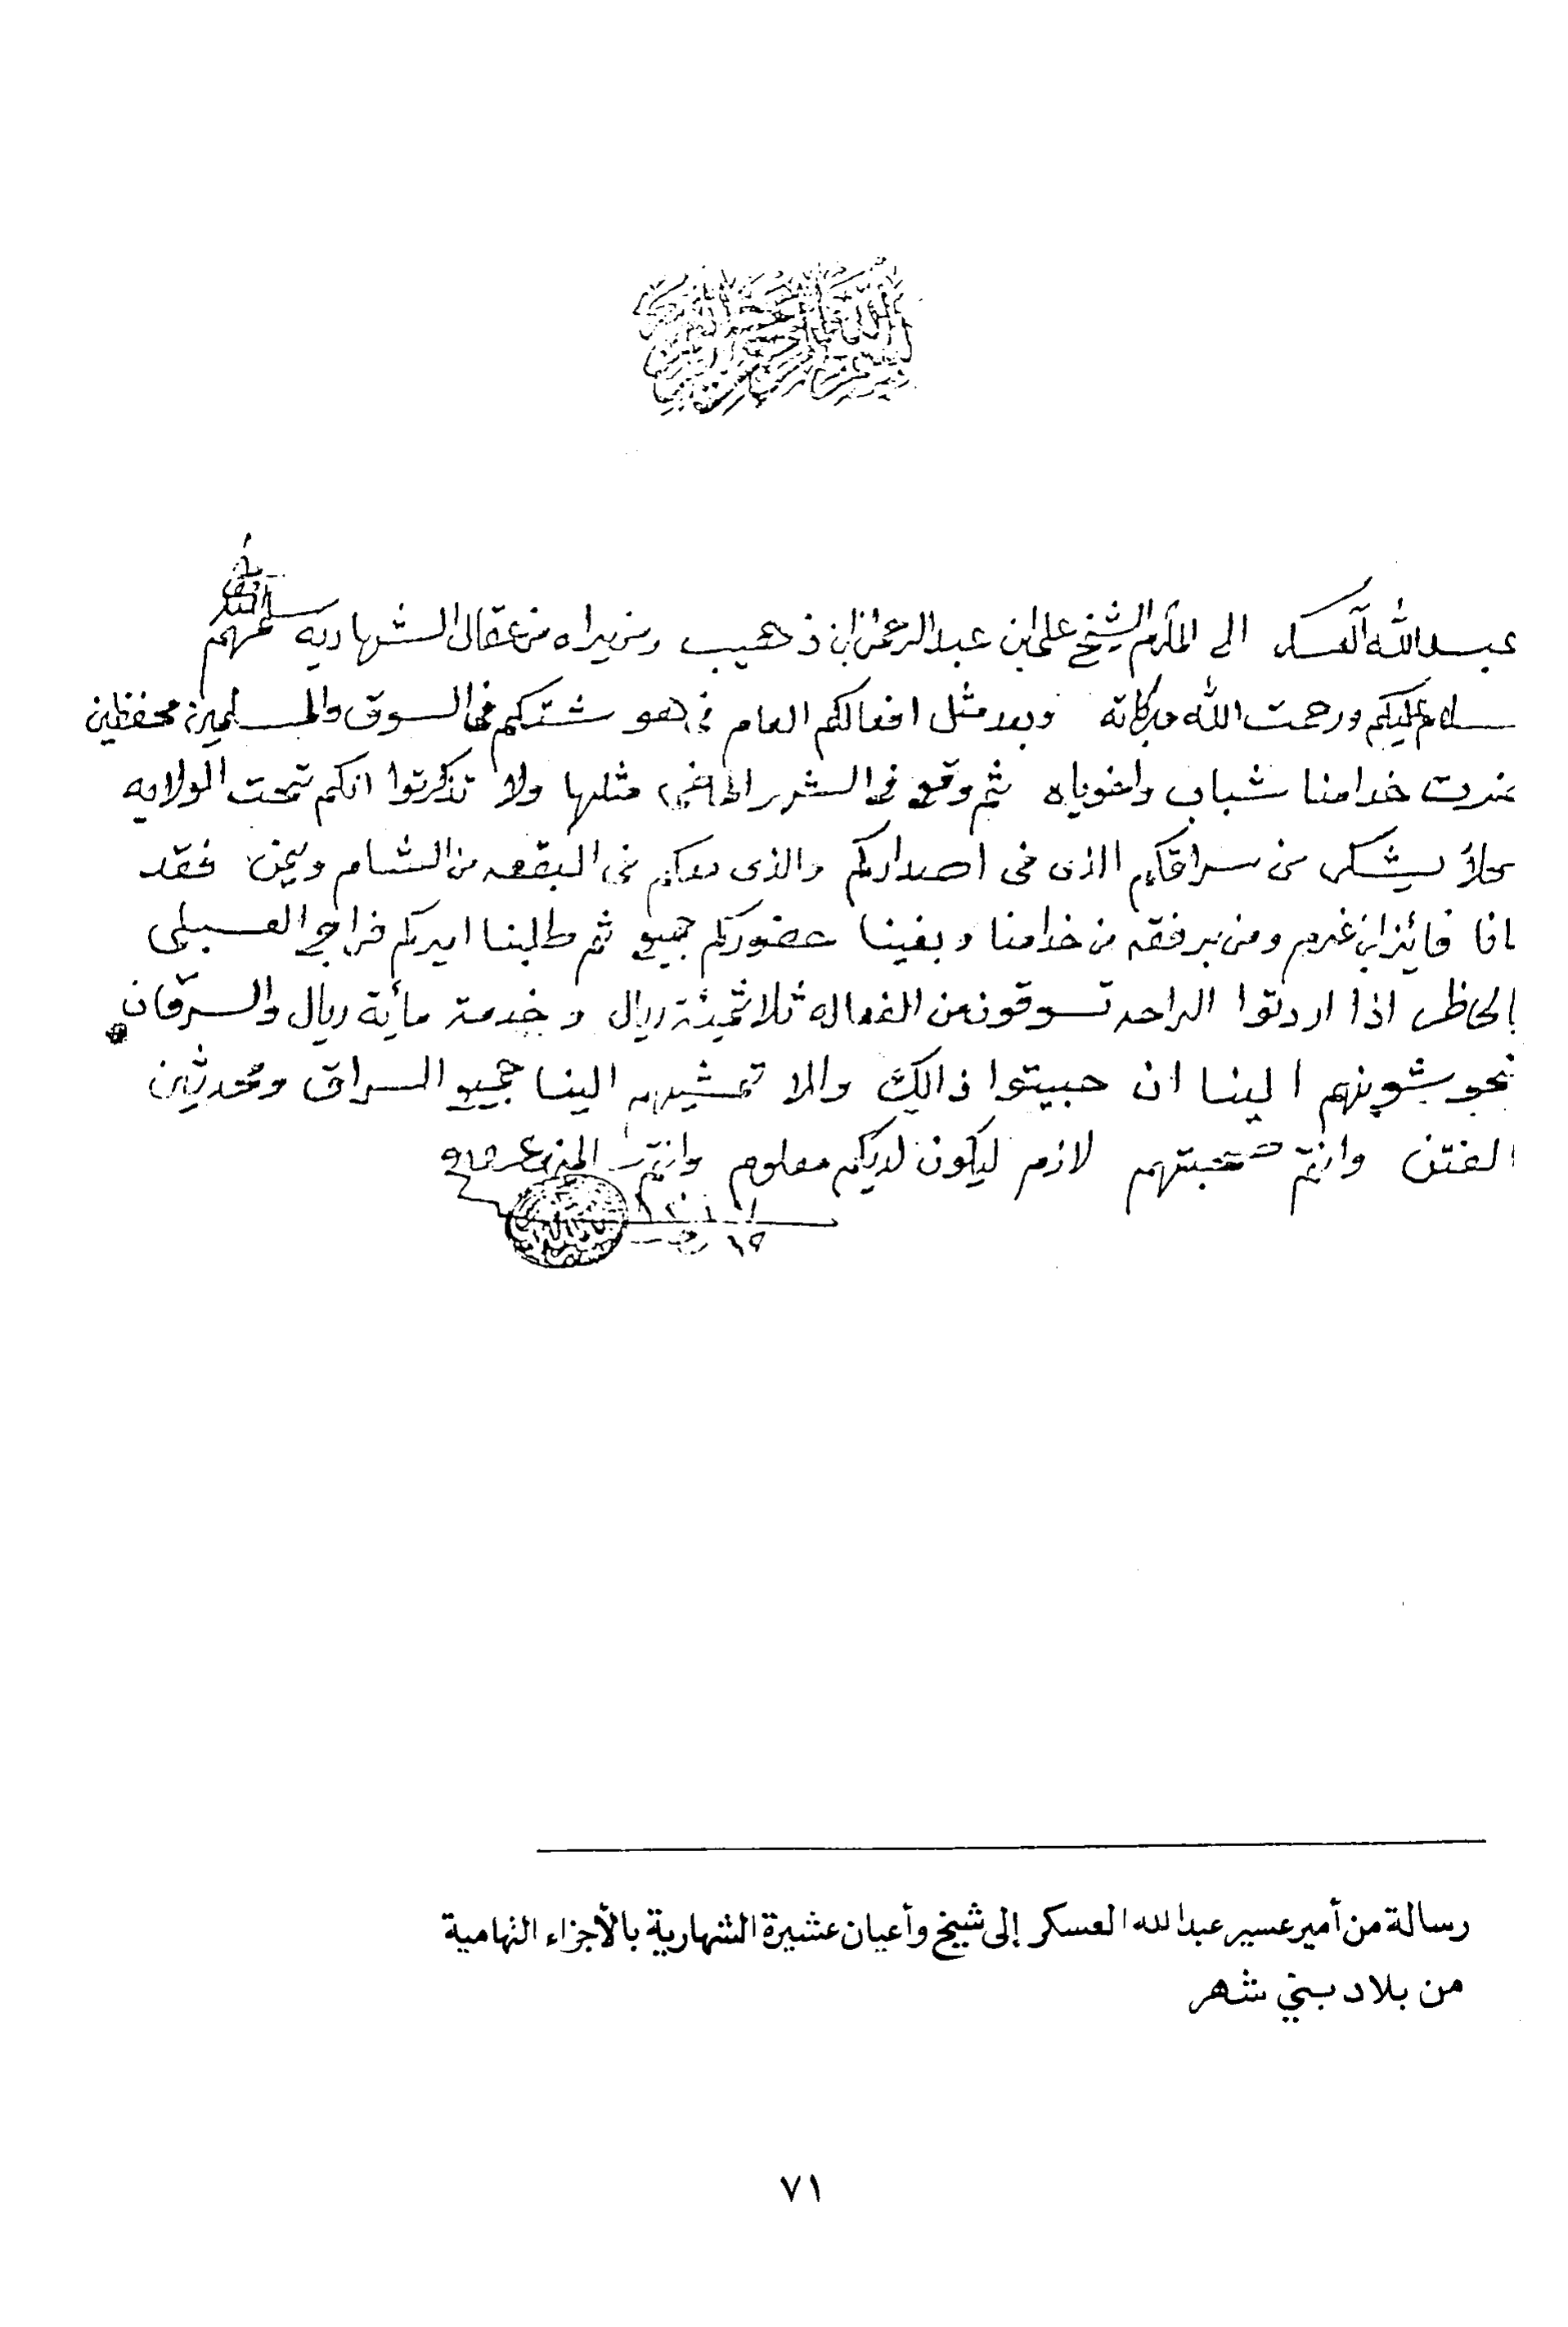 بسم الله الرحمن الرحيم
عبدالله آلعسكر الى المكرم الشيخ علي ابن عبدالرحمن ابن ذهيب ومن يراه من عقال الشهاريه سلمهم الله
سلام عليكم ورحمت الله وبركاته وبعد مثل افعالكم العام في هو شتكم في السوق والمسلمين محفظين
خدامنا شباب واخوياه ثم وقع في الشهر الماضي مثلها ولا تذكرتوا انكم تحت الولايه
كلاً يشكى من سراقكم الذي في اصداركم والذي معكم في البقعه من الشام ويمن فقد
انا فايز ابن غرم ومن برفقه من خدامنا وبغينا حضوركم جميع ثم طلبنا اميركم فراج العسبلي
الحاظر اذا اردتوا الراحه تسوقون من الفعاله ثلاثمئة ريال وخدمة مأية ريال والسرقان
تحوشونهم الينا ان حبيتوا ذالك والا تمشيهم الينا جميع السراق ومحدثين
الفتن وانتم صحبتهم لازم ليكون لديكم معلوم وانتم
رسالة من أمير عسير عبدالله العسكر إلى شيخ وأعيان عشيرة الشهارية بالأجزاء التهامية
من بلاد بني شهر
٧١